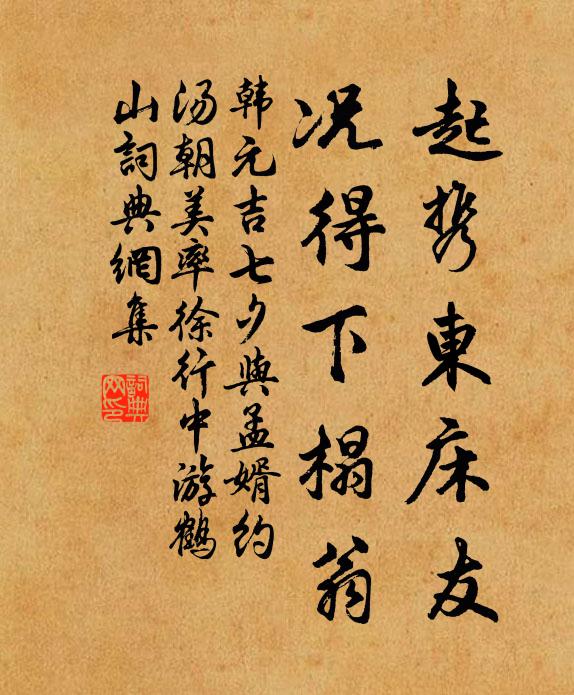 起携東床友
况得下榻翁
韩元吉七夕與孟婿约
汤朝美率徐行中游鶴
山詞典網集
詞典網印